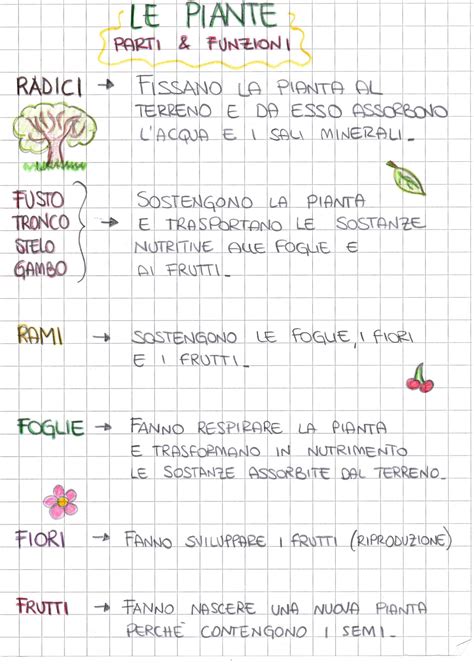 LE PIANTE
PARTI & FUNZIONI
RADICI → FISSANO LA PIANTA AL
TERRENO E DA ESSO ASSORBONO
L'ACQUA E I SALI MINERALI_
FUSTO
TRONCO
STELO
GAMBO
→ SOSTENGONO LA PIANTA
E TRASPORTANO LE SOSTANZE
NUTRITIVE ALLE FOGLIE E
AI FRUTTI_
RAMI → SOSTENGONO LE FOGLIE, I FIORI
E I FRUTTI_
FOGLIE → FANNO RESPIRARE LA PIANTA
E TRASFORMANO IN NUTRIMENTO
LE SOSTANZE ASSORBITE DAL TERRENO_
FIORI → FANNO SVILUPPARE I FRUTTI (RIPRODUZIONE)
FRUTTI → FANNO NASCERE UNA NUOVA PIANTA
PERCHÉ CONTENGONO I SEMI_